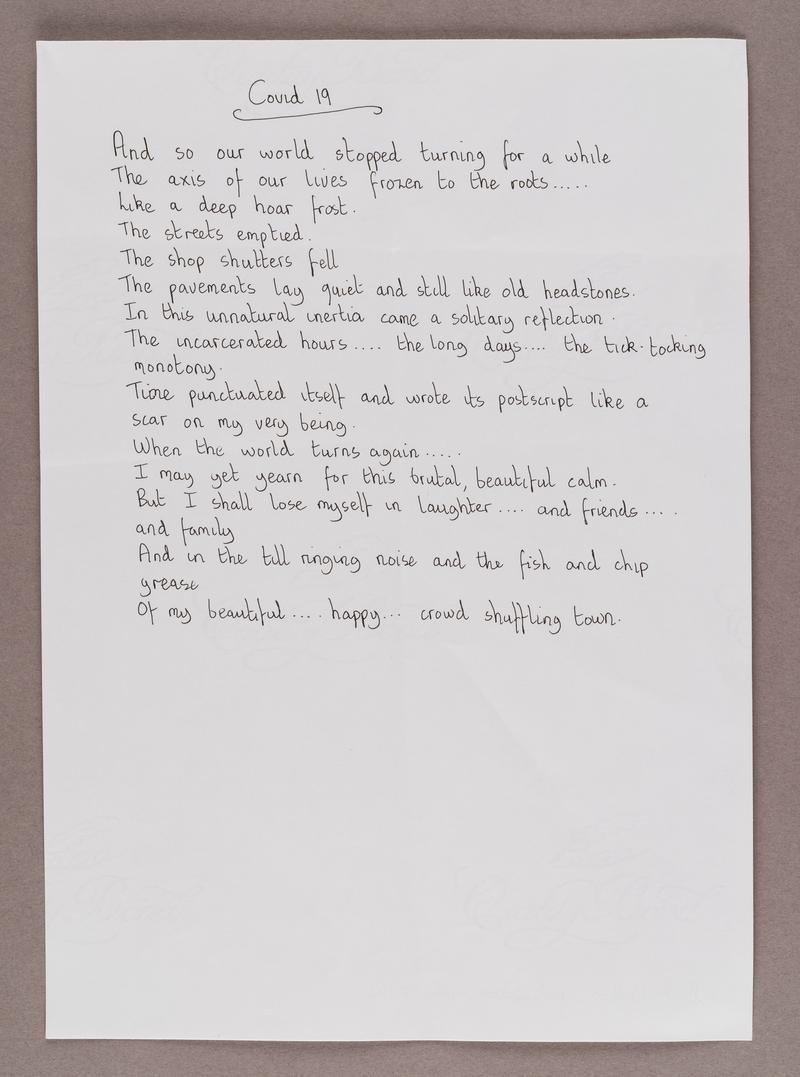 Covid 19
And so our world stopped turning for a while
The axis of our lives frozen to the roots.....
Like a deep hoar frost.
The streets emptied.
The shop shutters fell
The pavements lay quiet and still like old headstones.
In this unnatural inertia came a solitary reflection.
The incarcerated hours.... the long days.... the tick-tocking
monotony.
Time punctuated itself and wrote its postscript like a
scar on my very being.
When the world turns again.....
I may yet yearn for this brutal, beautiful calm.
But I shall lose myself in laughter.... and friends....
and family
And in the till ringing noise and the fish and chip
grease
Of my beautiful.... happy... crowd shuffling town.